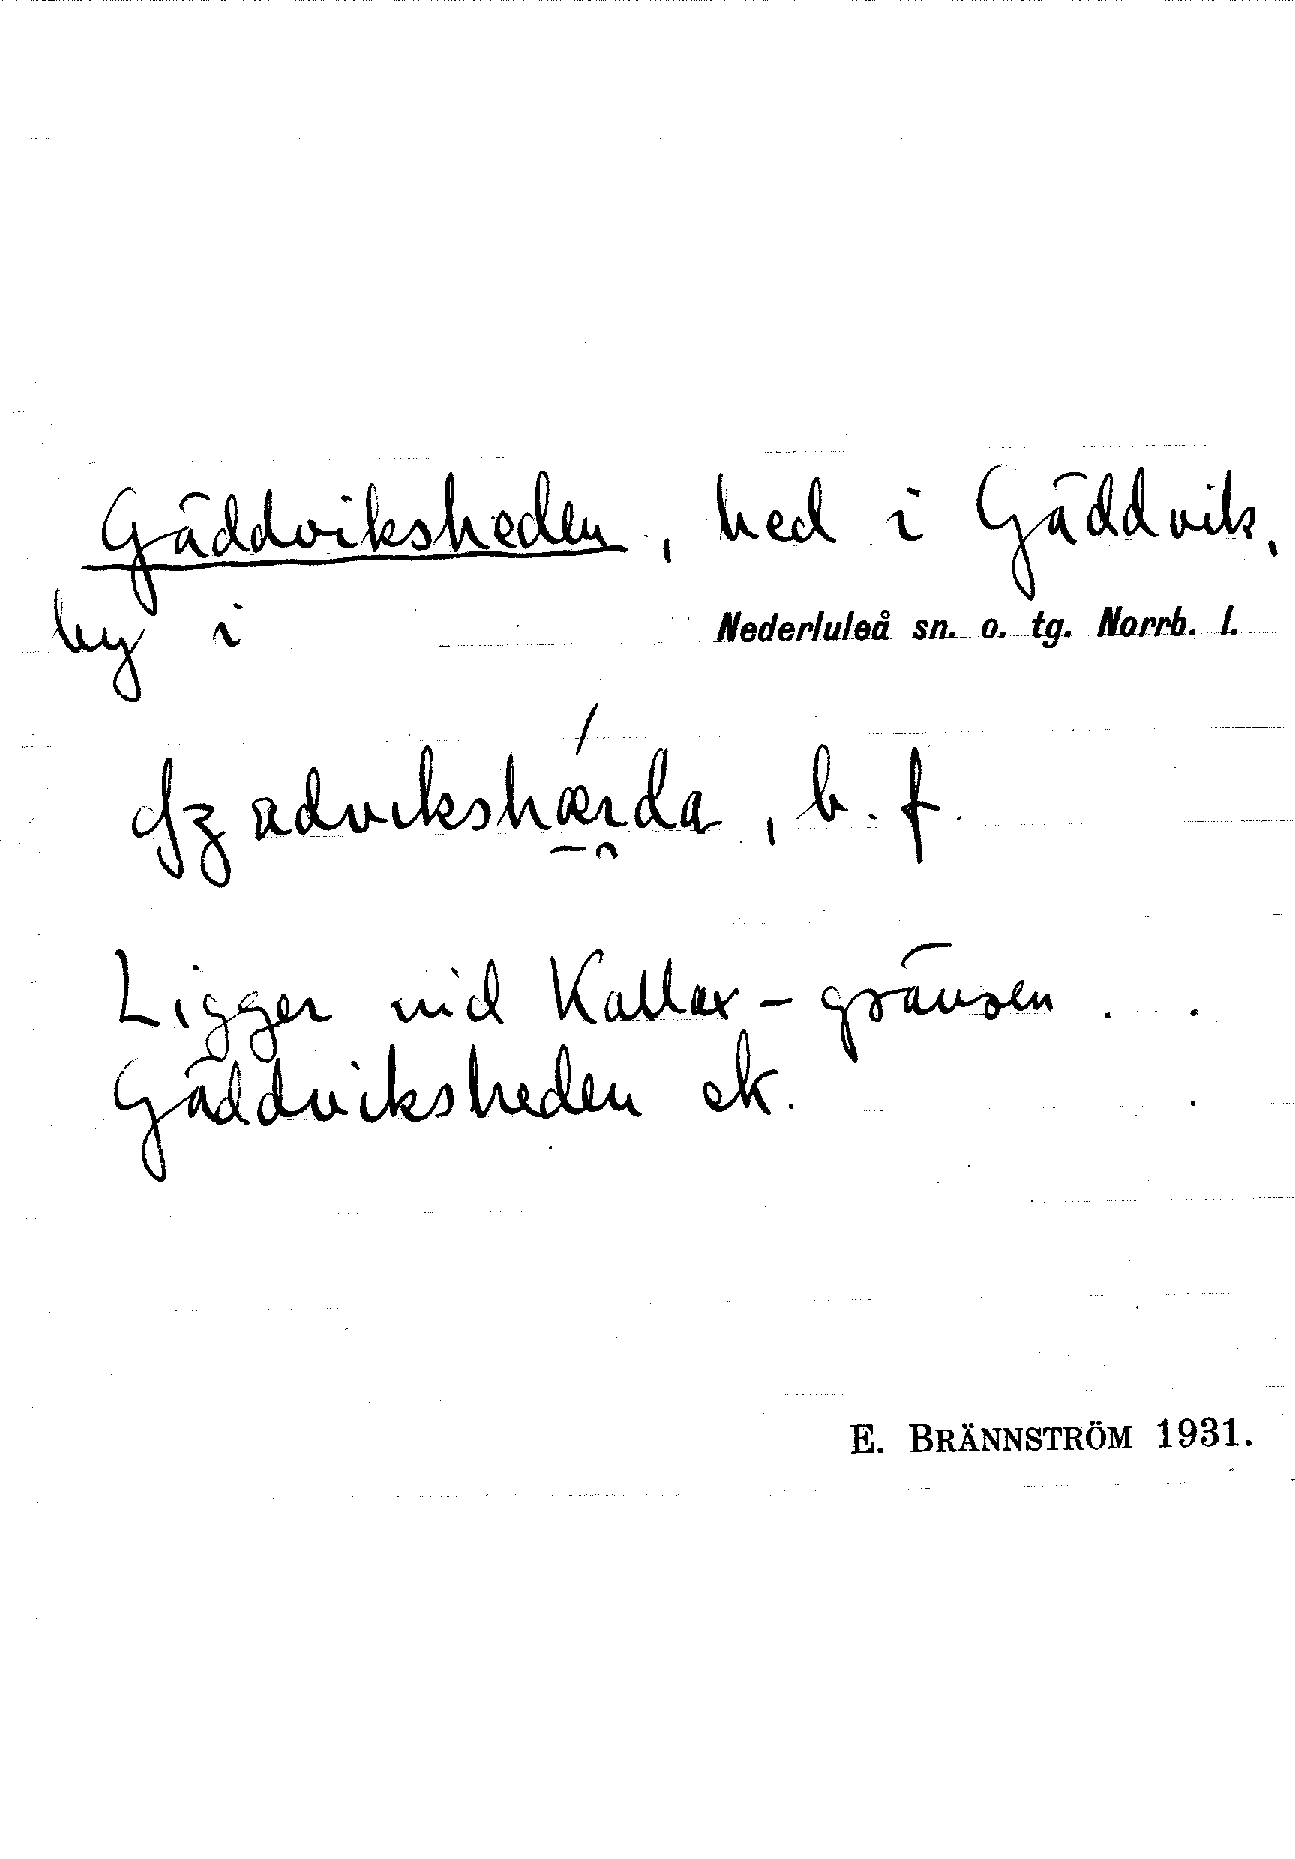 Gäddviksheden, hed i Gäddvik,
by i Nederluleå sn. o. tg. Norrb. l.
, b. f.
Ligger vid Kallax-gränsen . .
Gäddviksheden ek. .
E. BRÄNNSTRÖM 1931.